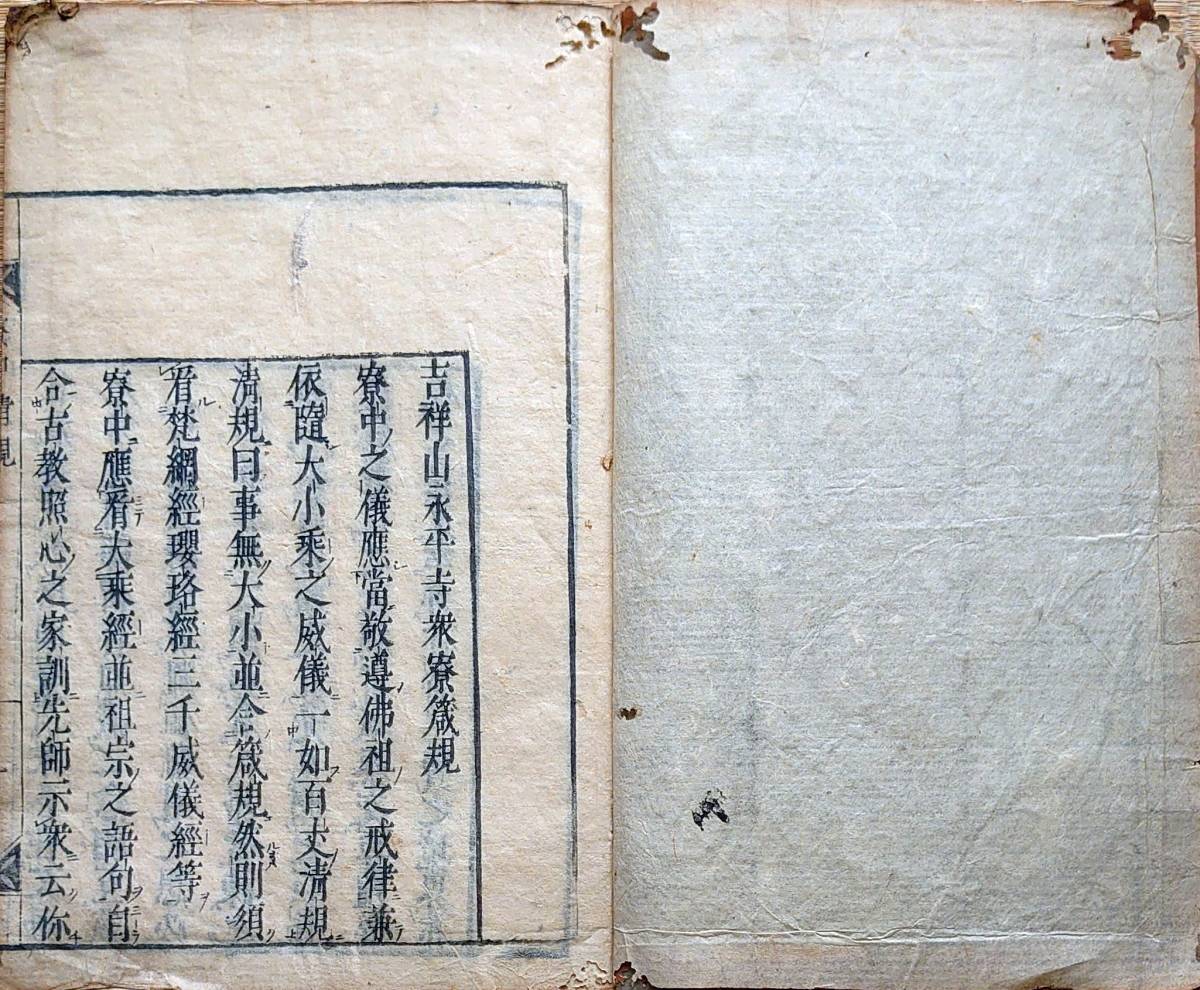 吉祥山永平寺衆寮箴規
寮中之儀應當敬遵佛祖之戒律兼
依隨大小乘之威儀一如百丈清規
清規曰事無大小並合箴規然則須
看梵網經瓔珞經三千威儀經等
寮中應看大乘經並祖宗之語句自
合古教照心之家訓先師示衆云你
清規